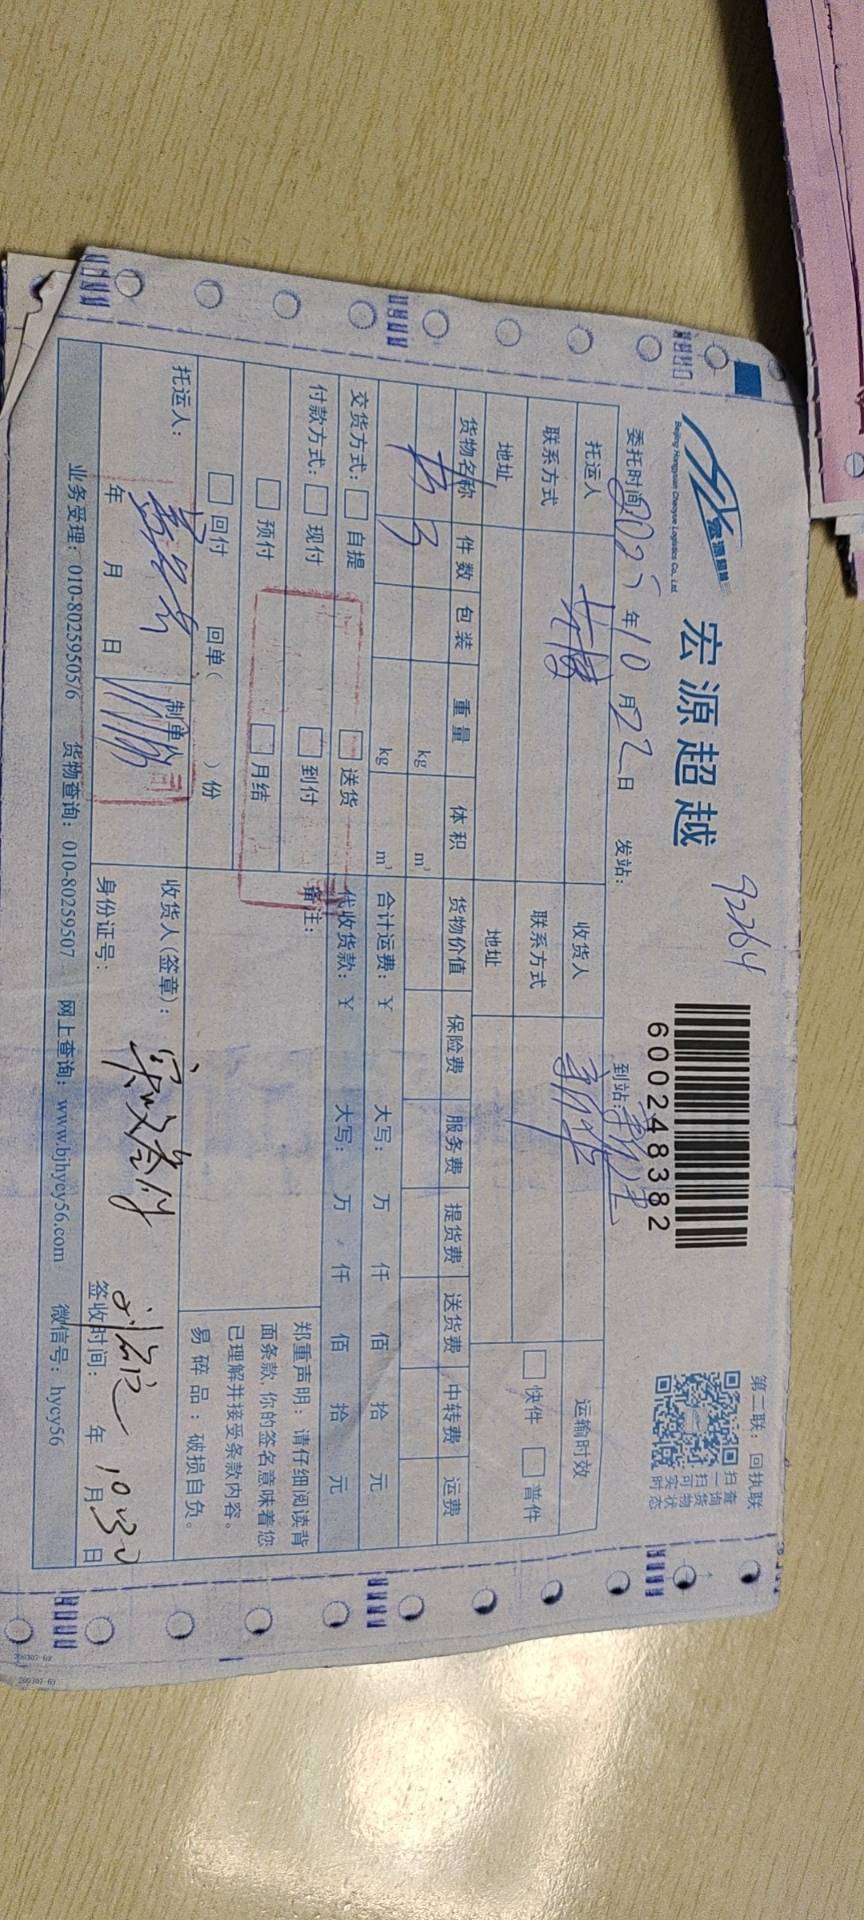 第二联：回执联
扫一扫可
查询货物实时状态
宏源超越
Beijing Hongyuan Chaoyue Logistics Co., Ltd.
宏源超越
92264
600248382
委托时间：2025年10月22日 发站： 到站：
托运人 收货人 新华 运输时效
联系方式 联系方式
地址 地址 快件 普件
货物名称 件数 包装 重量 体积 货物价值 保险费 服务费 提货费 送货费 中转费 运费
3 kg m³
kg m³ 合计运费：￥ 大写： 万 仟 佰 拾 元
交货方式： 自提 送货 代收货款：￥ 大写： 万 仟 佰 拾 元
付款方式： 现付 到付 备注：
预付 月结
回付 回单（ ）份
郑重声明：请仔细阅读背
面条款,你的签名意味着您
已理解并接受条款内容。
易碎品：破损自负。
托运人： 制单人 收货人(签章)：
年 月 日 身份证号： 签收时间： 年 10月30日
业务受理：010-80259505/6 货物查询：010-80259507 网上查询：www.bjhycy56.com 微信号：hycy56